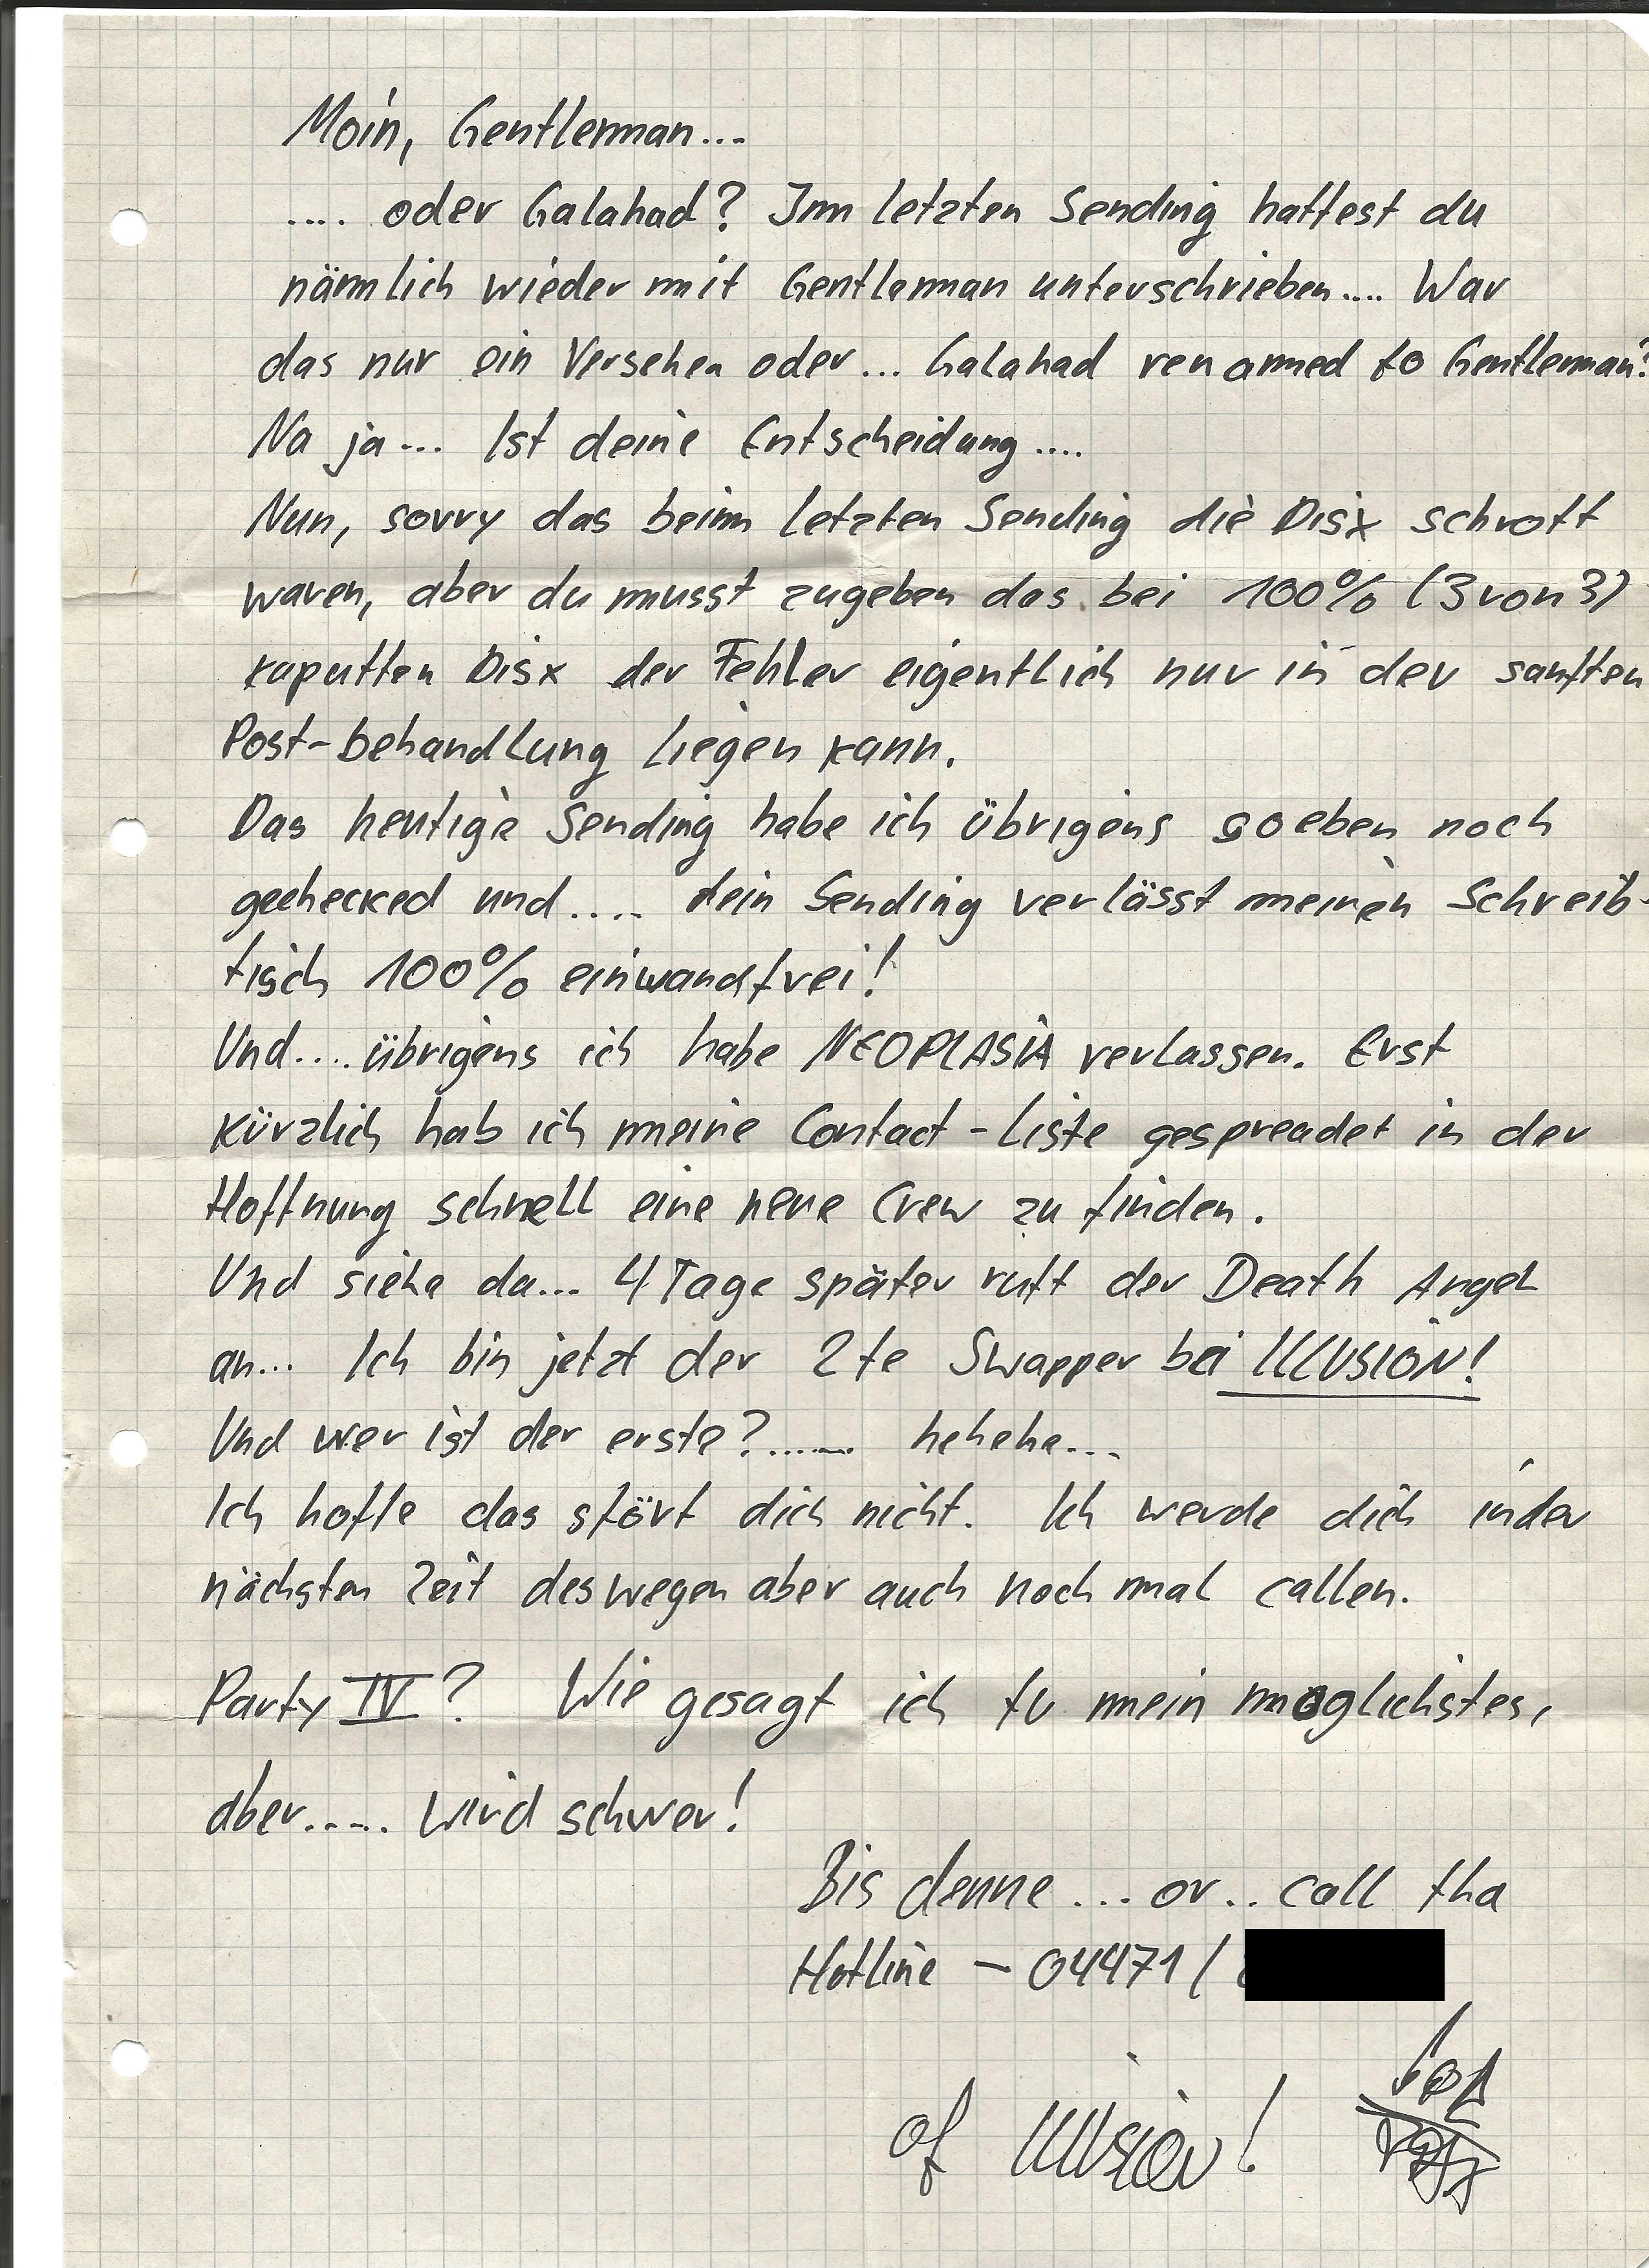 Moin, Gentleman...
.... oder Galahad? Im letzten Sending hattest du
nämlich wieder mit Gentleman unterschrieben.... War
das nur ein Versehen oder... Galahad renamed to Gentleman?
Na ja... Ist deine Entscheidung....
Nun, sorry das beim letzten Sending die Disx schrott
waren, aber du musst zugeben das bei 100% (3 von 3)
kaputten Disx der Fehler eigentlich nur in der sanften
Post-behandlung liegen kann.
Das heutige Sending habe ich übrigens soeben noch
gechecked und.... dein Sending verlässt meinen Schreib-
tisch 100% einwandfrei!
Und.... übrigens ich habe NEOPLASIA verlassen. Erst
kürzlich hab ich meine Contact-Liste gespreadet in der
Hoffnung schnell eine neue Crew zu finden.
Und siehe da... 4 Tage später ruft der Death Angel
an... Ich bin jetzt der 2te Swapper bei ILLUSION!
Und wer ist der erste?....... hehehe...
Ich hoffe das stört dich nicht. Ich werde dich in der
nächsten Zeit deswegen aber auch noch mal callen.
Party IV? Wie gesagt ich tu mein moglichstes,
aber..... wird schwer!
Bis denne ... or.. call tha
Hotline - 04471 /
of Illusion!